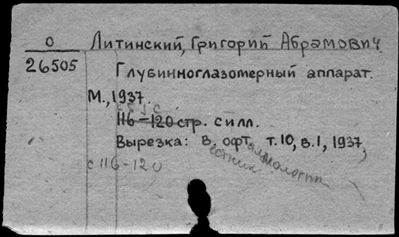 О
26505
Литинский, Григорий Абрамович.
Глубинноглазомерный аппарат.
М., 1937.
116-120 стр. с илл.
Вырезка: в. офт. т.10, в.1, 1937,
с 116-120